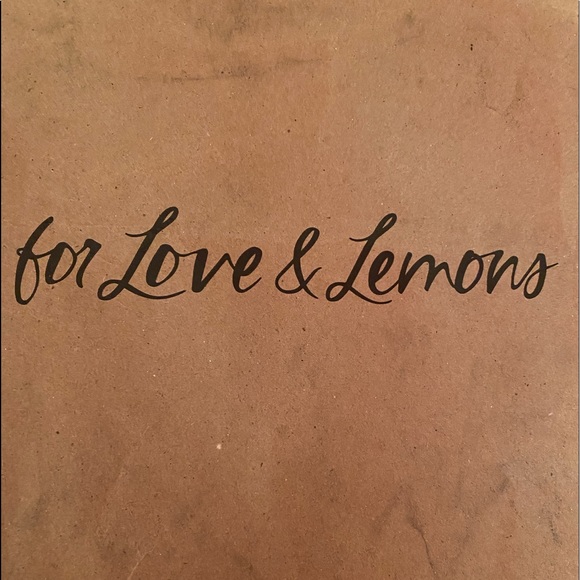 for Love & Lemons